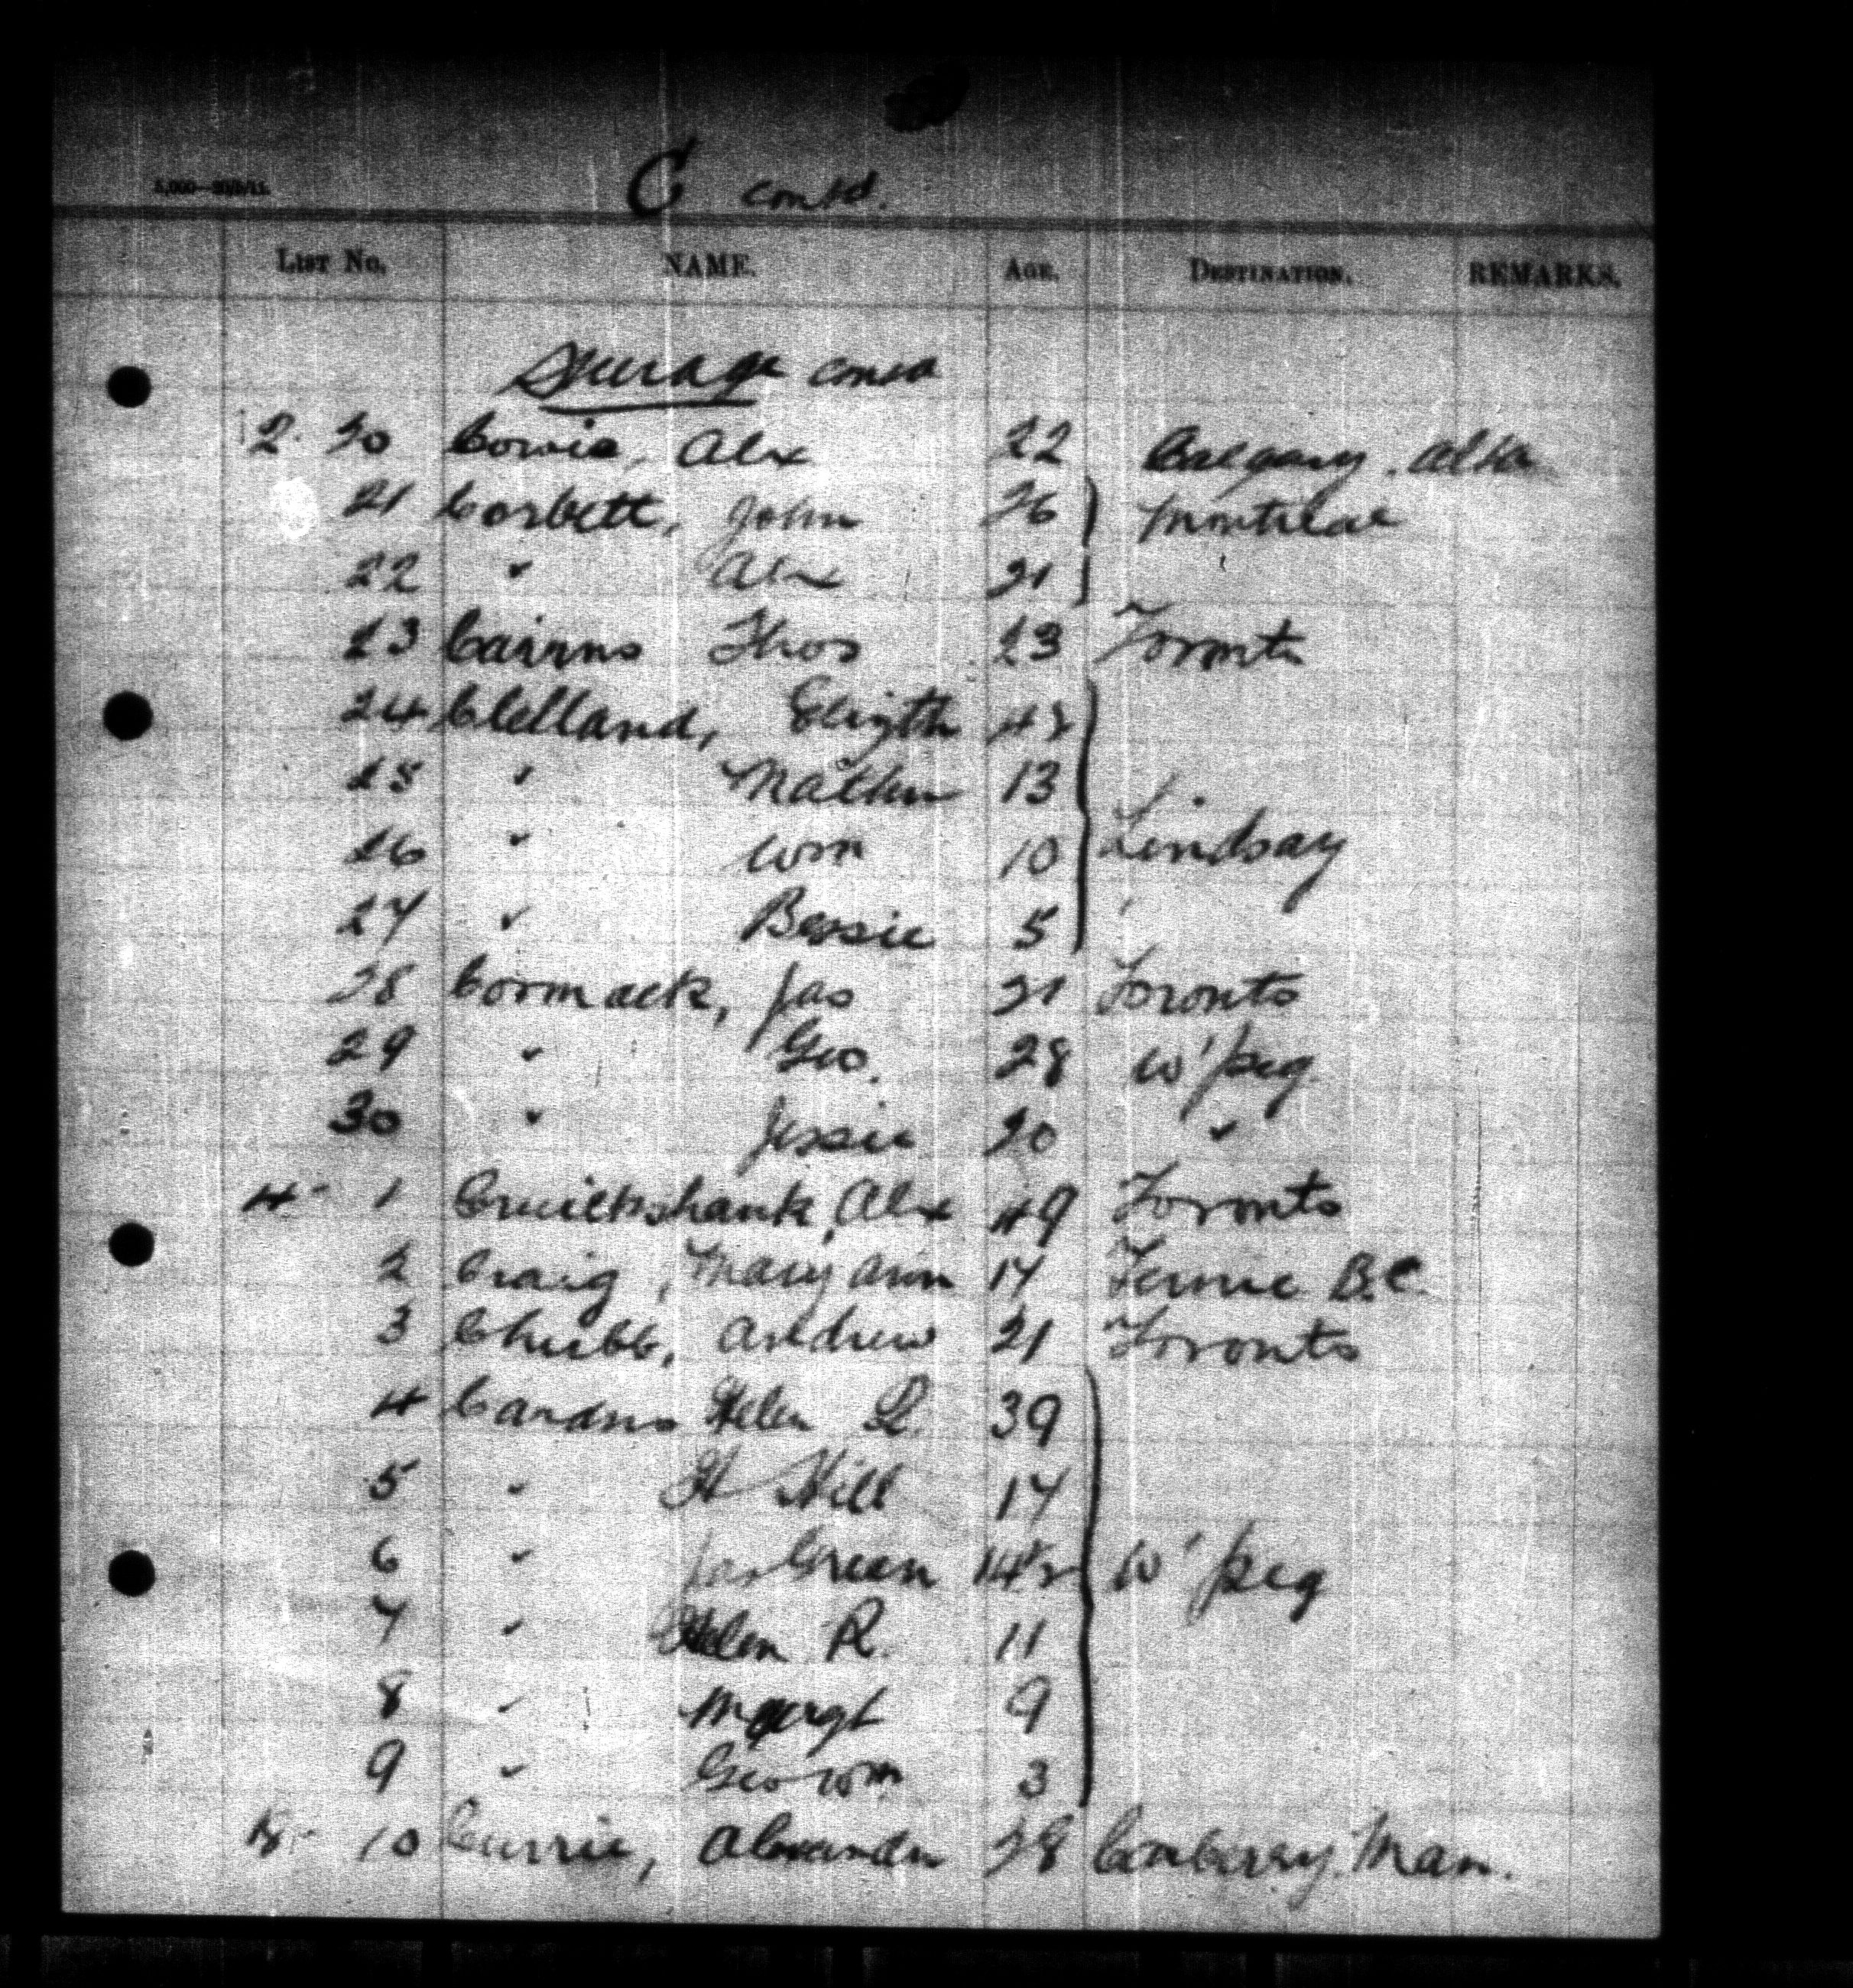 5,000—20/5/11.
C contd.
LIST No. NAME. AGE. DESTINATION. REMARKS.
Steerage contd
2. 20 Cowie, Alex 22 Calgary. Alta
21 Corbett, John 26 Montreal
22 " Alex 21
23 Cairns Thos 23 Toronto
24 Clelland, Elizth 42
25 " Matthew 13
26 " Wm 10 Lindsay
27 " Bessie 5
28 Cormack, Jas 21 Toronto
29 " Geo. 28 W'peg
30 " Jessie 20 "
4- 1 Cruickshank, Alex 49 Toronto
2 Craig, Mary Ann 17 Fernie B.C.
3 Chubb, Andrew 21 Toronto
4 Cardno Helen L. 39
5 " H Hill 17
6 " Jas Green 14 W'peg
7 " Helen R. 11
8 " Margt 9
9 " Geo Wm 3
10 Currie, Alexander 28 Carberry. Man.